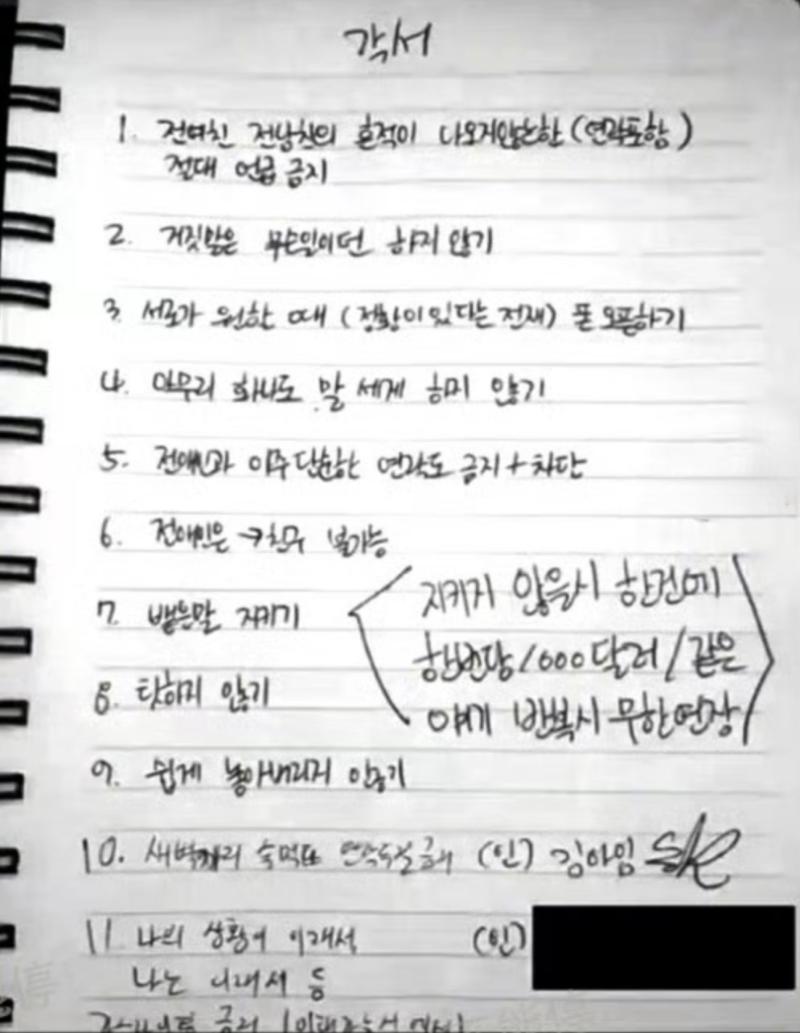 각서
1. 전여친 전남친의 흔적이 나오지않는한 (연락포함)
절대 언급 금지
2. 거짓말은 무슨일이던 하지 않기
3. 서로가 원할 때 (정황이 있다는 전재) 폰 오픈하기
4. 아무리 화나도 말 세게 하지 않기
5. 전애인과 아주 단순한 연락도 금지 + 차단
6. 전애인은 → 친구 불가능
7. 뱉은말 지키기
지키지 않을시 한건에
한번당 1000달러 / 같은
얘기 반복시 무한연장
8. 탓하지 않기
9. 쉽게 놓아버리지 않기
10. 새벽까지 술먹고 (인) 김아임
11 나의 상황이 이래서 (인)
나는 이래서 등